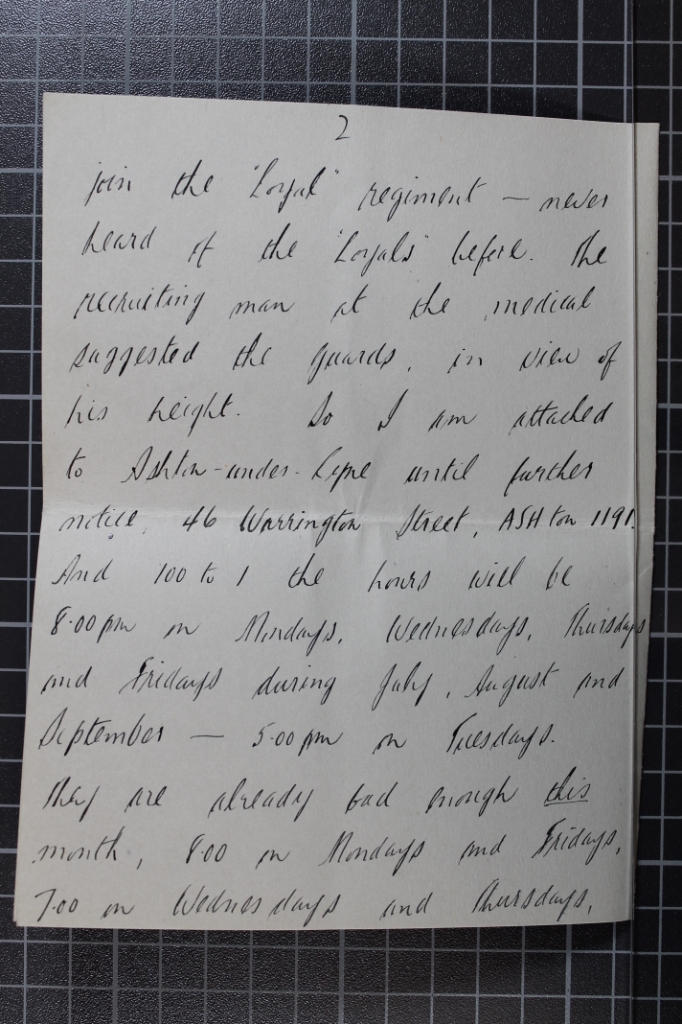 2
join the "Loyal" regiment — never
heard of the "Loyals" before. The
recruiting man at the medical
suggested the guards, in view of
his height. So I am attached
to Ashton-under-Lyne until further
notice, 46 Warrington Street, ASHton 1191.
And 100 to 1 the hours will be
8.00 pm on Mondays, Wednesdays, Thursdays
and Fridays during July, August and
September — 5.00 pm on Tuesdays.
They are already bad enough this
month, 8.00 on Mondays and Fridays,
7.00 on Wednesdays and Thursdays,